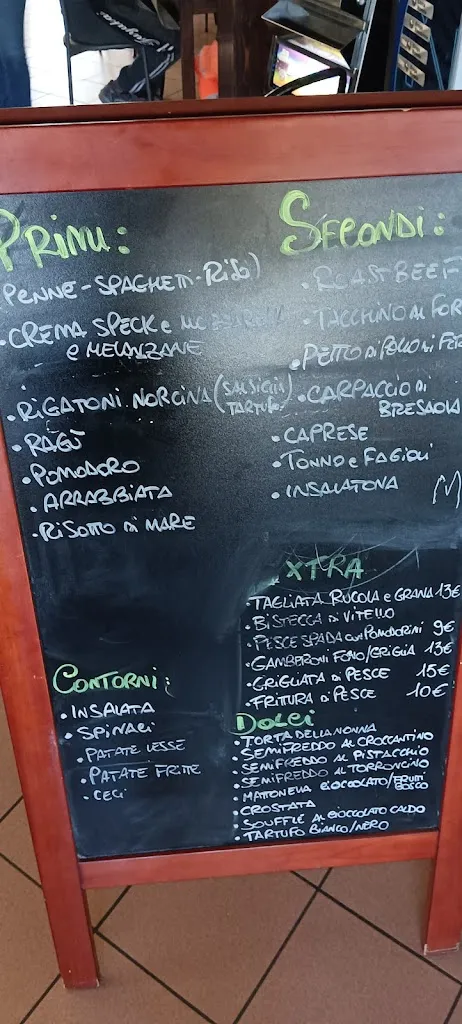 PRIMI:
PENNE-SPAGHETTI-RISO)
• CREMA SPECK e
e MELANZANE
• RIGATONI NORCINA (SALSICCIA
TARTUFO)
• RAGÙ
• POMODORO
• ARRABBIATA
• RISOTTO DI MARE
SECONDI:
• ROAST BEEF
• TACCHINO AL FOR
• PETTO DI POLLO AI FER
• CARPACCIO DI
BRESAOLA
• CAPRESE
• TONNO e FAGIOLI
• INSALATONA
M
XTRA
• TAGLIATA RUCOLA e GRANA 13€
• BISTECCA DI VITELLO
• PESCE SPADA CON POMODORINI 9€
• GAMBERONI FORNO/GRIGLIA 13€
• GRIGLIATA DI PESCE 15€
• FRITTURA DI PESCE 10€
CONTORNI:
• INSALATA
• SPINACI
• PATATE LESSE
• PATATE FRITTE
• CECI
DOLCI
• TORTA DELLA NONNA
• SEMIFREDDO AL CROCCANTINO
• SEMIFREDDO AL PISTACCHIO
• SEMIFREDDO AL TORRONCINO
• MATTONELLA CIOCCOLATO/FRUTTI
BOSCO
• CROSTATA
• SOUFFLÉ AL CIOCCOLATO CALDO
• TARTUFO BIANCO/NERO